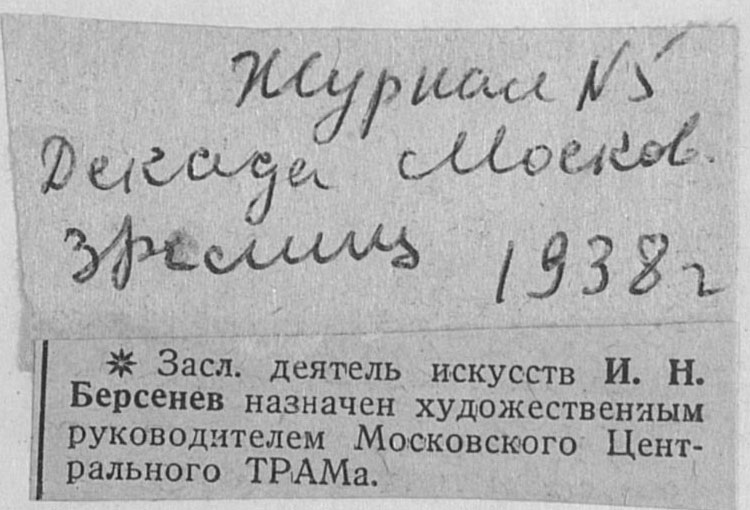 Журнал N 5
Декада Москов.
зрелищ 1938 г
✷ Засл. деятель искусств И. Н.
Берсенев назначен художественным
руководителем Московского Цент-
рального ТРАМа.